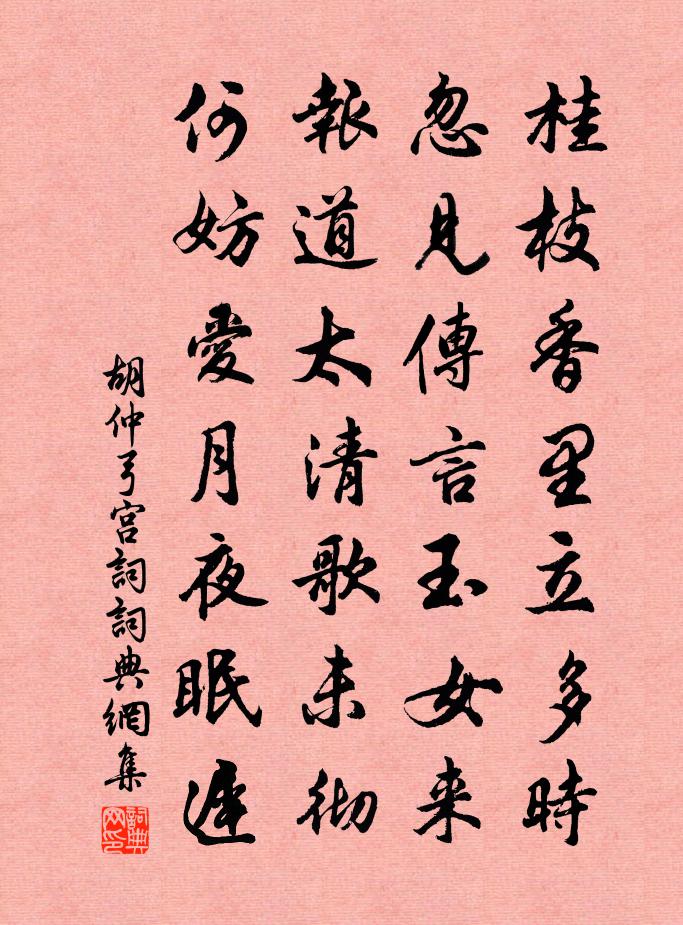 桂枝香里立多時
忽見傳言玉女来
報道太清歌未彻
何妨愛月夜眠遲
胡仲弓宮詞詞典網集
詞典网印